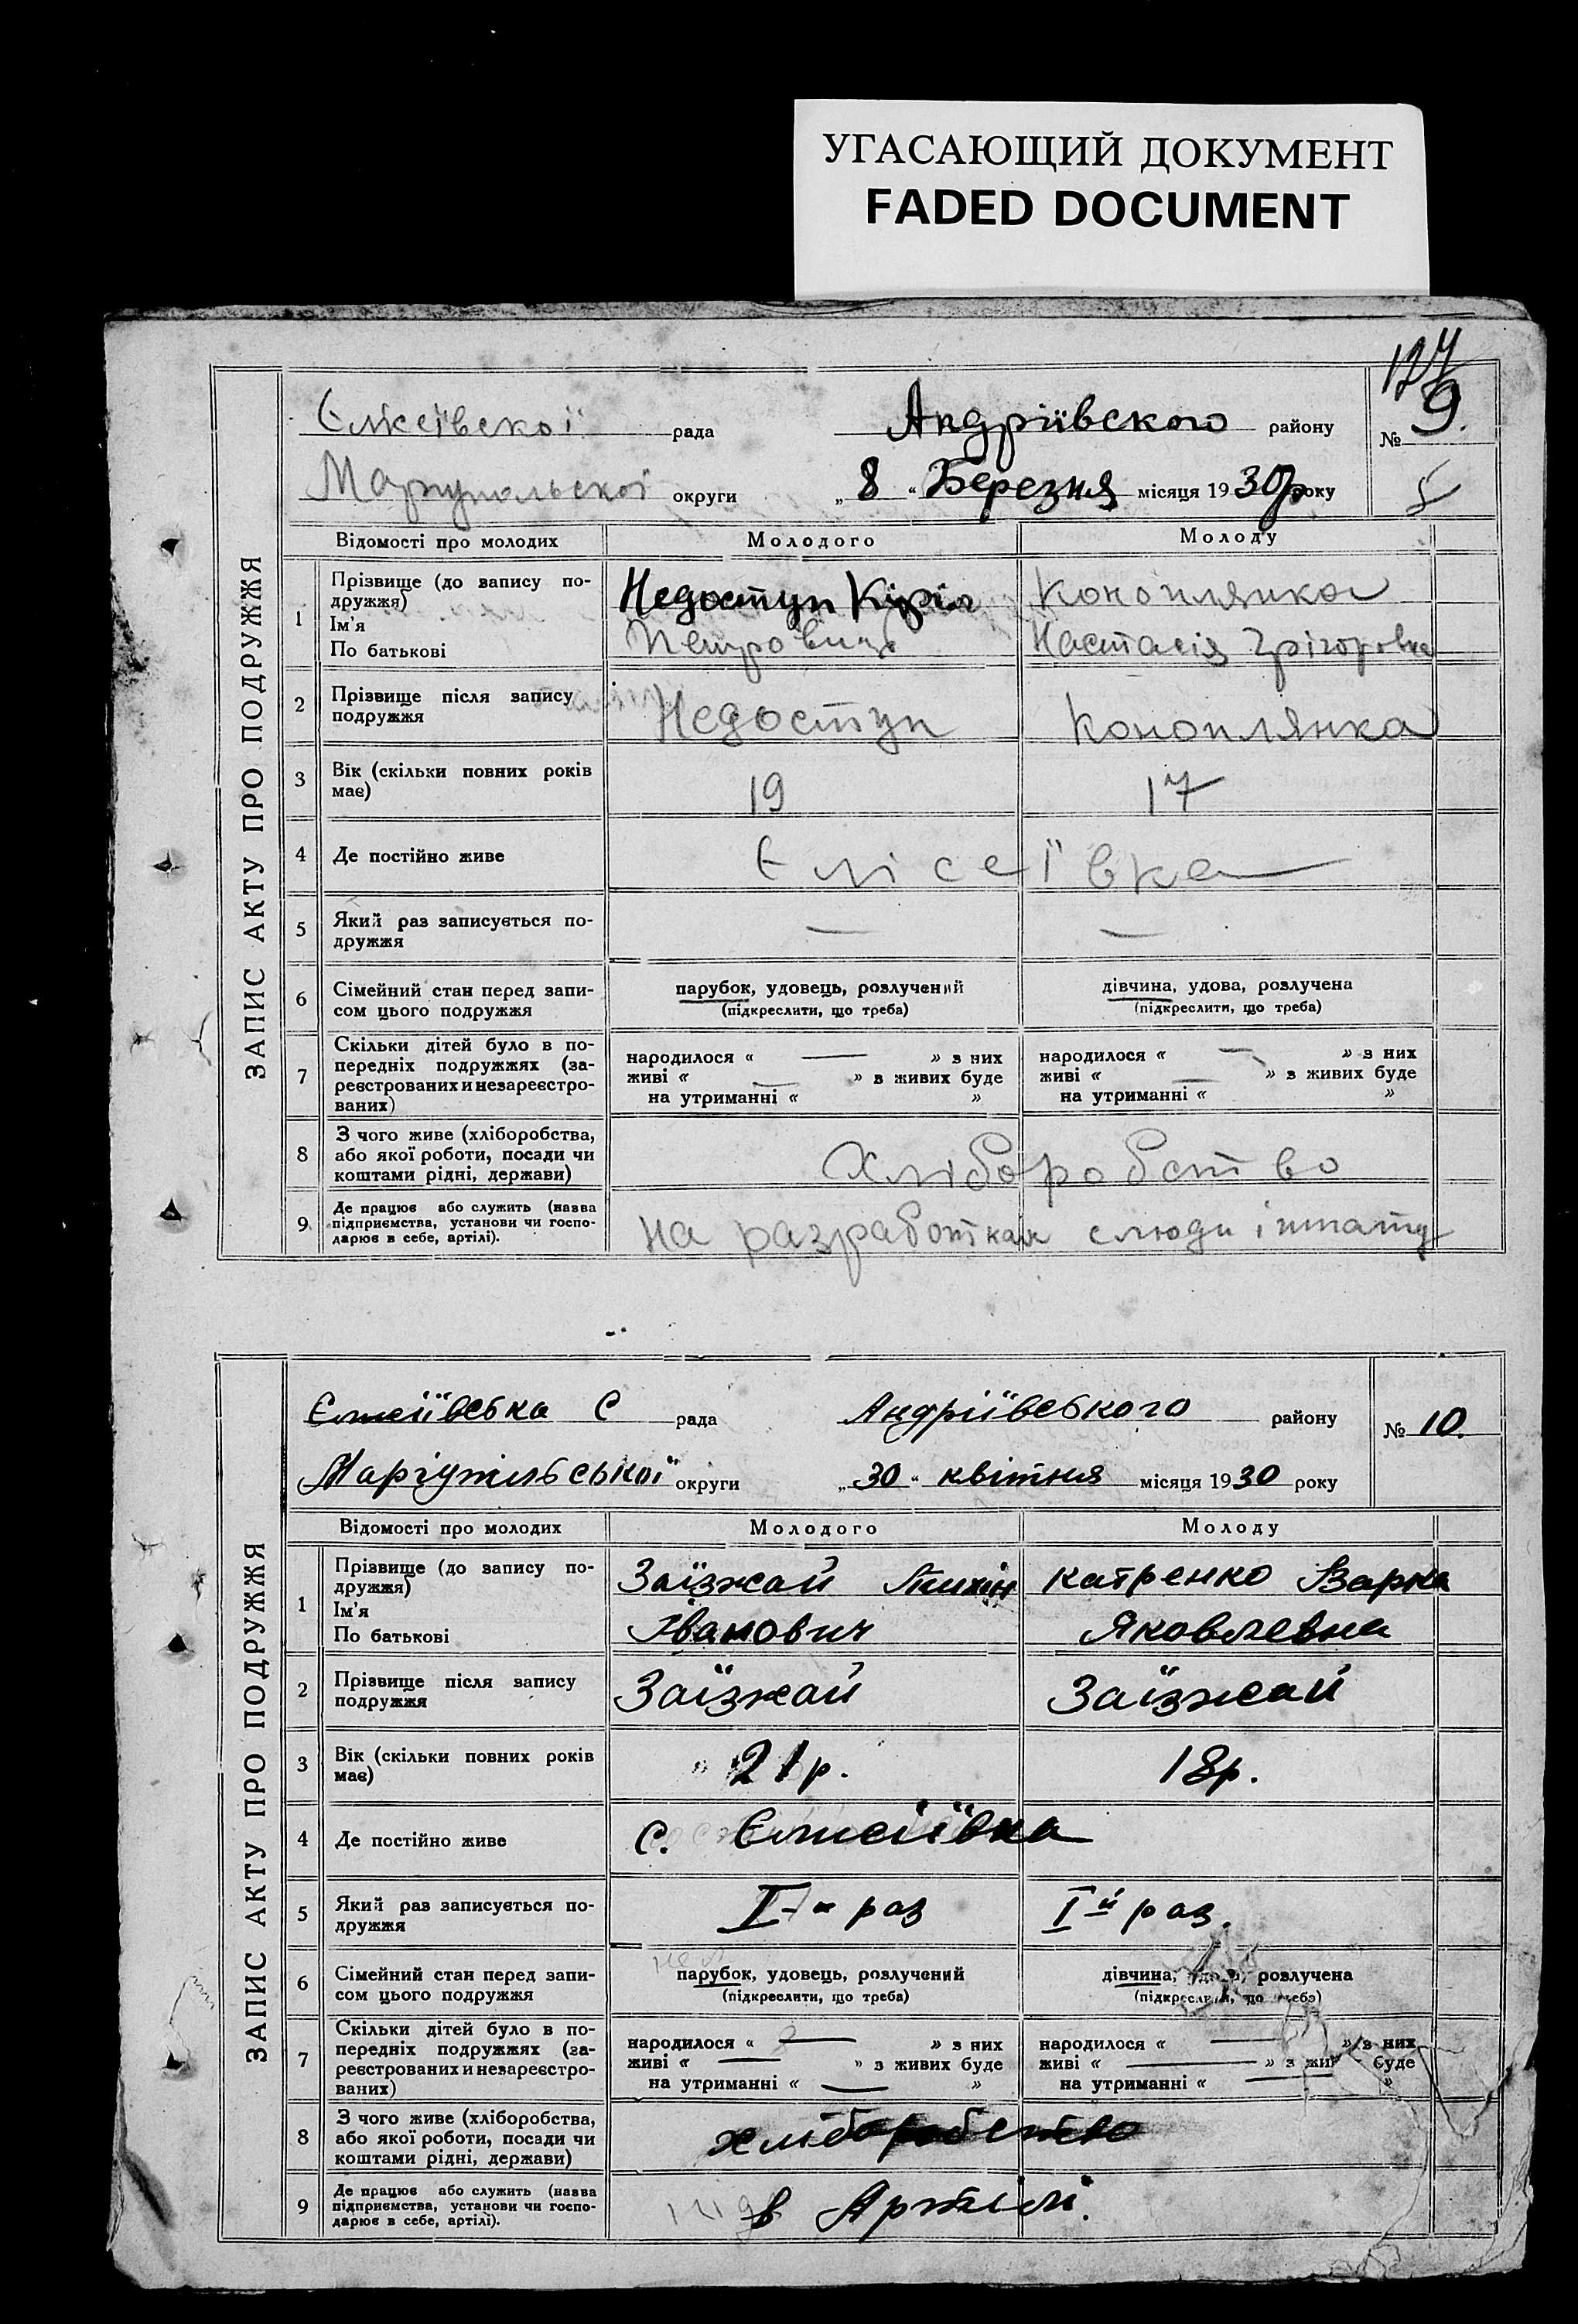 УГАСАЮЩИЙ ДОКУМЕНТ
FADED DOCUMENT
127
ЗАПИС АКТУ ПРО ПОДРУЖЖЯ
Єлісеївскої рада Андріївского району № 9.
Маріупольскої округи „ 8 “ Березня місяця 1930р року
Відомості про молодих Молодого Молоду
1 Прізвище (до запису по-
дружжя)
Ім'я
По батькові
Недоступ Кіріл
Петровичь
Коноплянка
Настасія Грігоровна
2 Прізвище після запису
подружжя
Недоступ Коноплянка
3 Вік (скільки повних років
має)
19 17
4 Де постійно живе Єлісеївка
5 Який раз записується по-
дружжя
— —
6 Сімейний стан перед запи-
сом цього подружжя
парубок, удовець, розлучений
(підкреслити, що треба)
дівчина, удова, розлучена
(підкреслити, що треба)
7 Скільки дітей було в по-
передніх подружжях (за-
реєстрованих и незареєстро-
ваних)
народилося « — » з них
живі « — » в живих буде
на утриманні « »
народилося « — » з них
живі « — » в живих буде
на утриманні « »
8 З чого живе (хліборобства,
або якої роботи, посади чи
коштами рідні, держави)
Хліборобство
9 Де працює або служить (назва
підприємства, установи чи госпо-
дарює в себе, артілі).
На разработках слюди
ЗАПИС АКТУ ПРО ПОДРУЖЖЯ
Єлисіївська С рада Андріївського району № 10.
Маріупільської округи „ 30 “ квітня місяця 1930 року
Відомості про молодих Молодого Молоду
1 Прізвище (до запису по-
дружжя)
Ім'я
По батькові
Заїзжай Тихін
Іванович
Катренко Варка
Яковлевна
2 Прізвище після запису
подружжя
Заїзжай Заїзжай
3 Вік (скільки повних років
має)
21 р. 18р.
4 Де постійно живе с. Єлисіївка
5 Який раз записується по-
дружжя
I-й раз I й раз.
6 Сімейний стан перед запи-
сом цього подружжя
парубок, удовець, розлучений
(підкреслити, що треба)
дівчина, розлучена
(підкреслити, що треба)
7 Скільки дітей було в по-
передніх подружжях (за-
реєстрованих и незареєстро-
ваних)
народилося « — » з них
живі « — » з живих буде
на утриманні « — »
народилося « — » з них
живі « — » з живих буде
на утриманні « — »
8 З чого живе (хліборобства,
або якої роботи, посади чи
коштами рідні, держави)
хліборобство
9 Де працює або служить (назва
підприємства, установи чи госпо-
дарює в себе, артілі).
в Артілі.